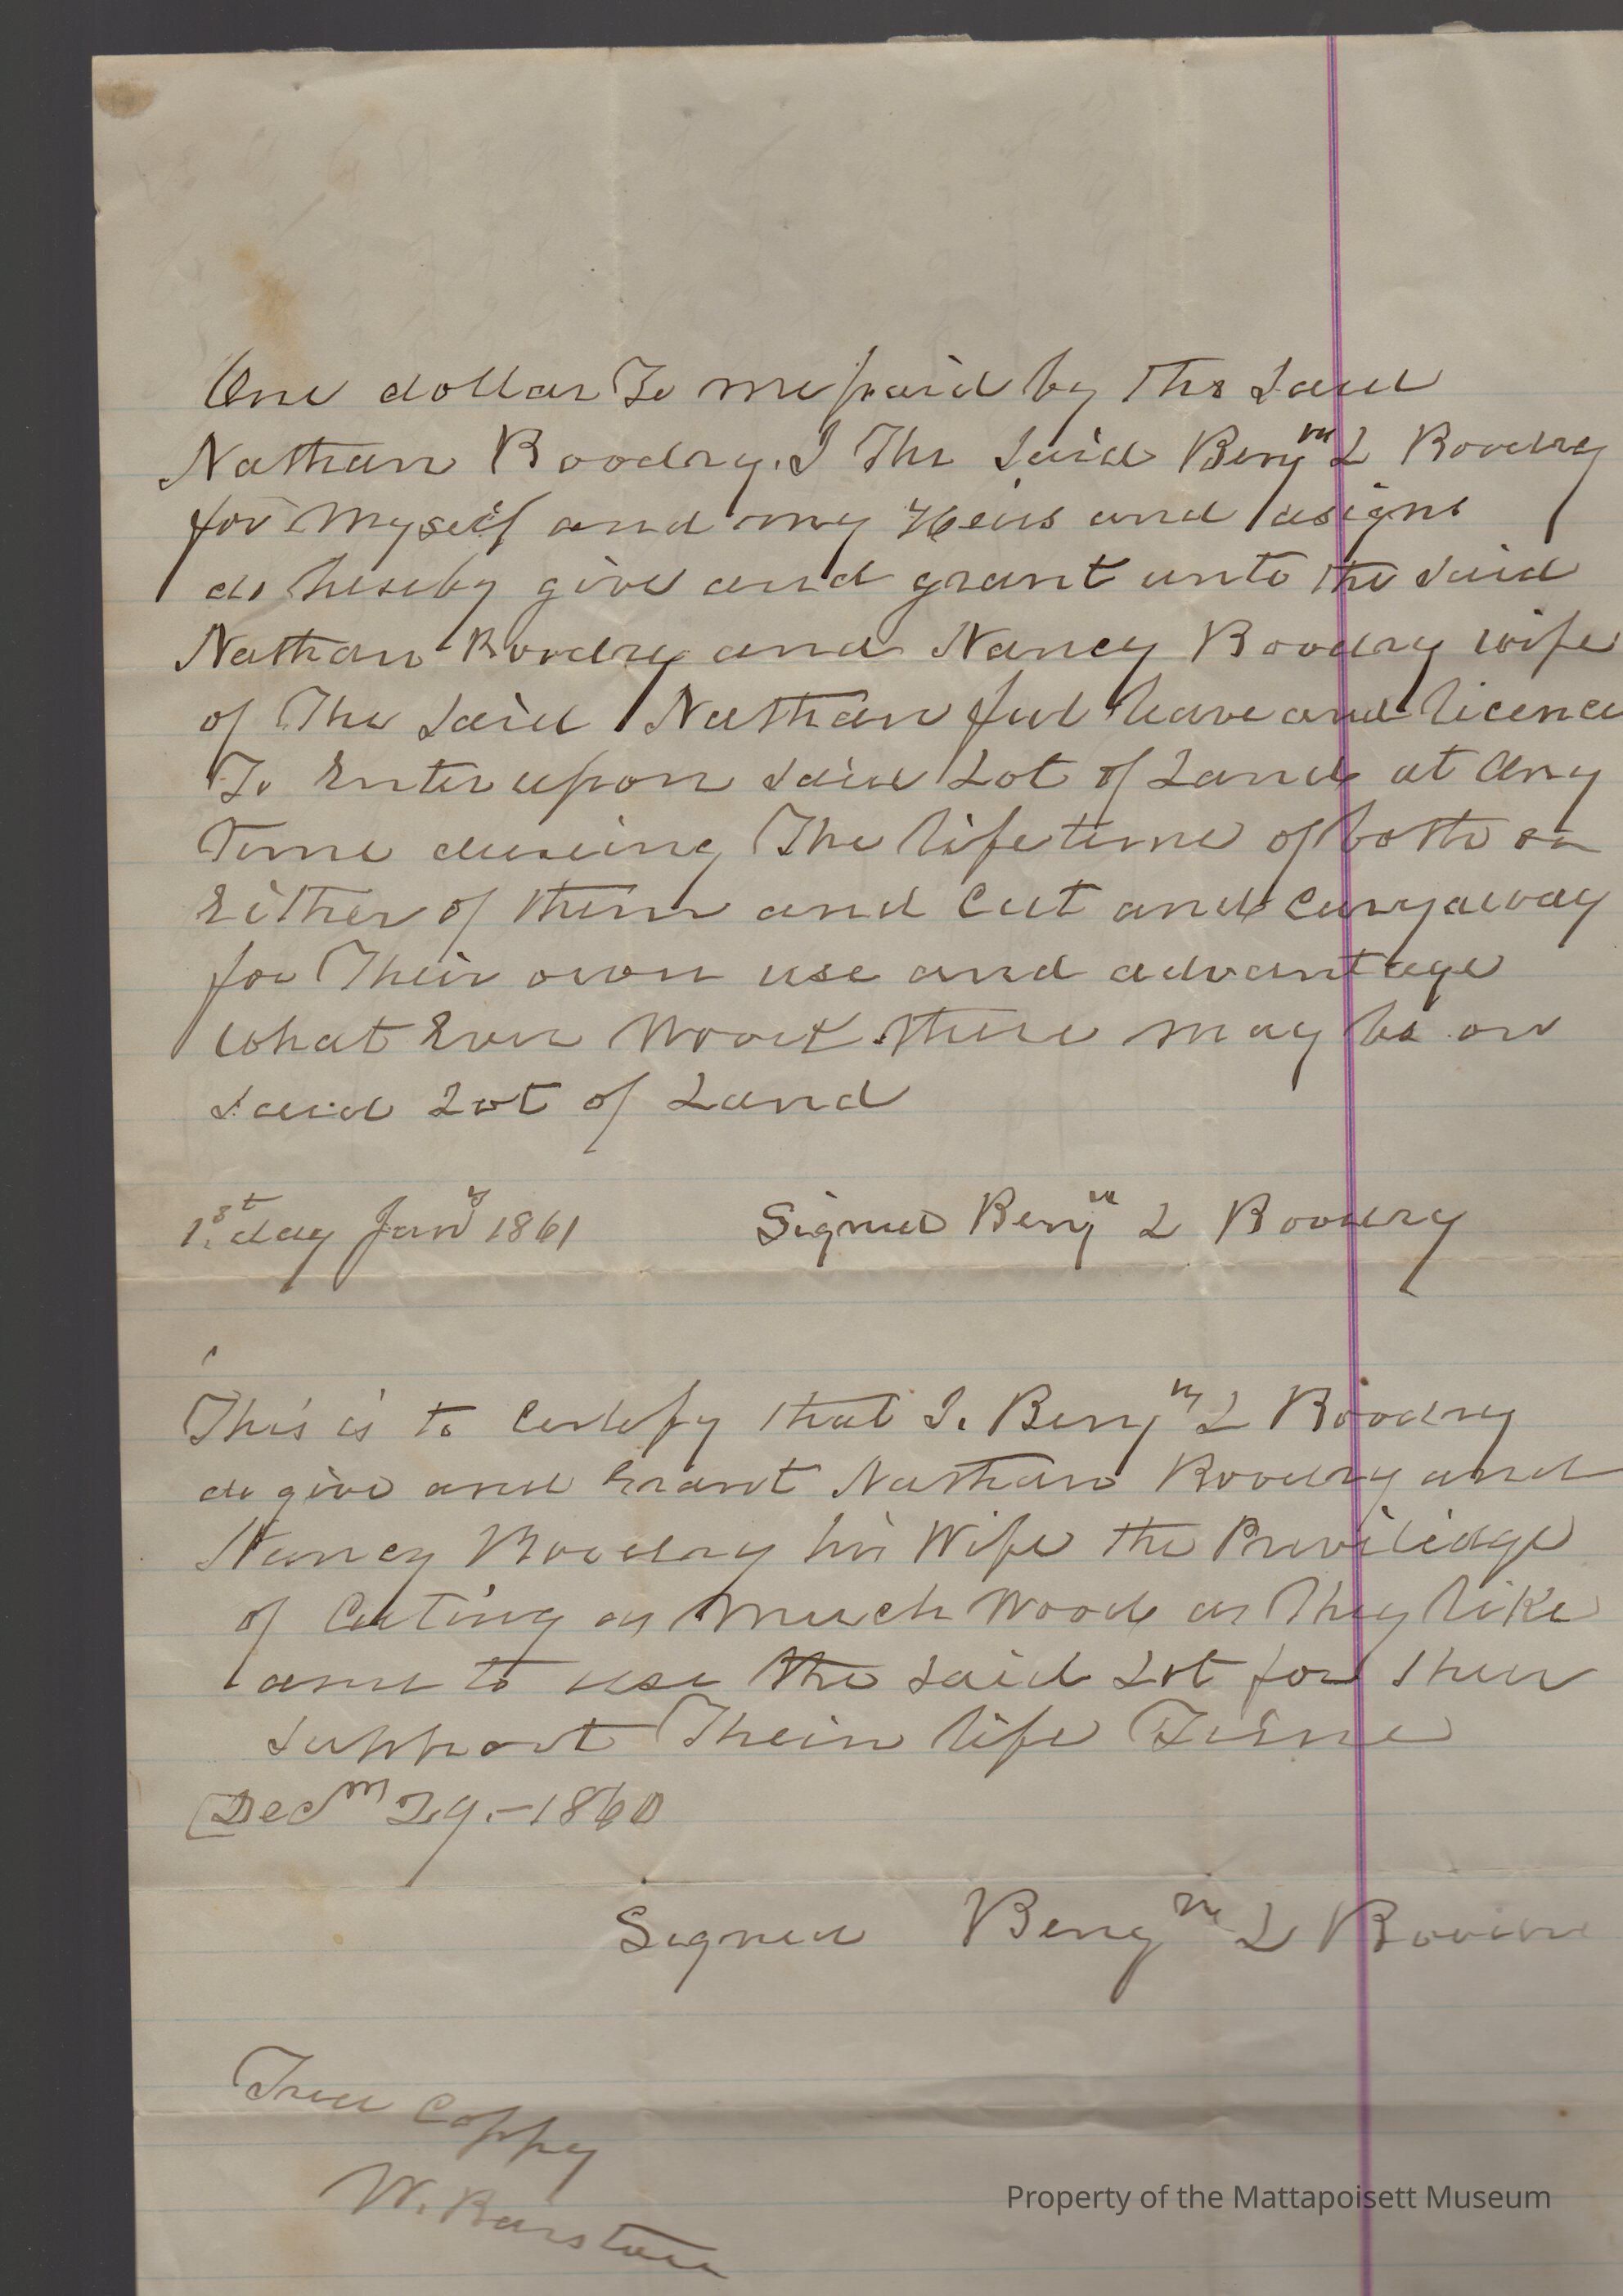 One dollar To me paid by The Said
Nathan Boodry. I The Said Benjm L Boodry
for Myself and my Heirs and asigns
do hereby give and grant unto the said
Nathan Boodry and Nancy Boodry wife
of The Said Nathan full leave and licence
To Enter upon said Lot of Land at Any
Time dureing The life time of both or
Either of them and Cut and Carry away
for Their own use and advantage
what Ever Wood there may be on
said Lot of Land
1st day Jany 1861 Signed Benjn L Boodry
This is to Certefy that I. Benjm L Boodry
do give and Grant Nathan Boodry and
Nancy Boodry his Wife the Privilidge
of Cuting as Much Wood as they like
and to use the said Lot for their
support Their life Time
Decm 29.-1860
Signed Benjm L Boodry
True Coppy
W. Barstow
Property of the Mattapoisett Museum